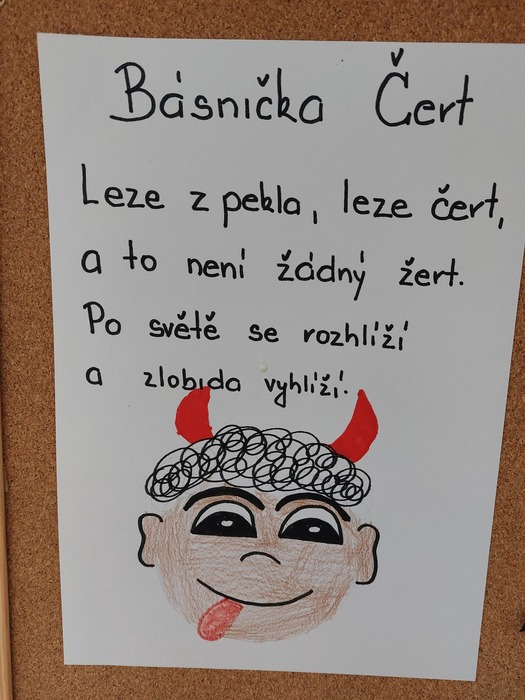 Básnička Čert
Leze z pekla, leze čert,
a to není žádný žert.
Po světě se rozhlíží
a zlobida vyhlíží.